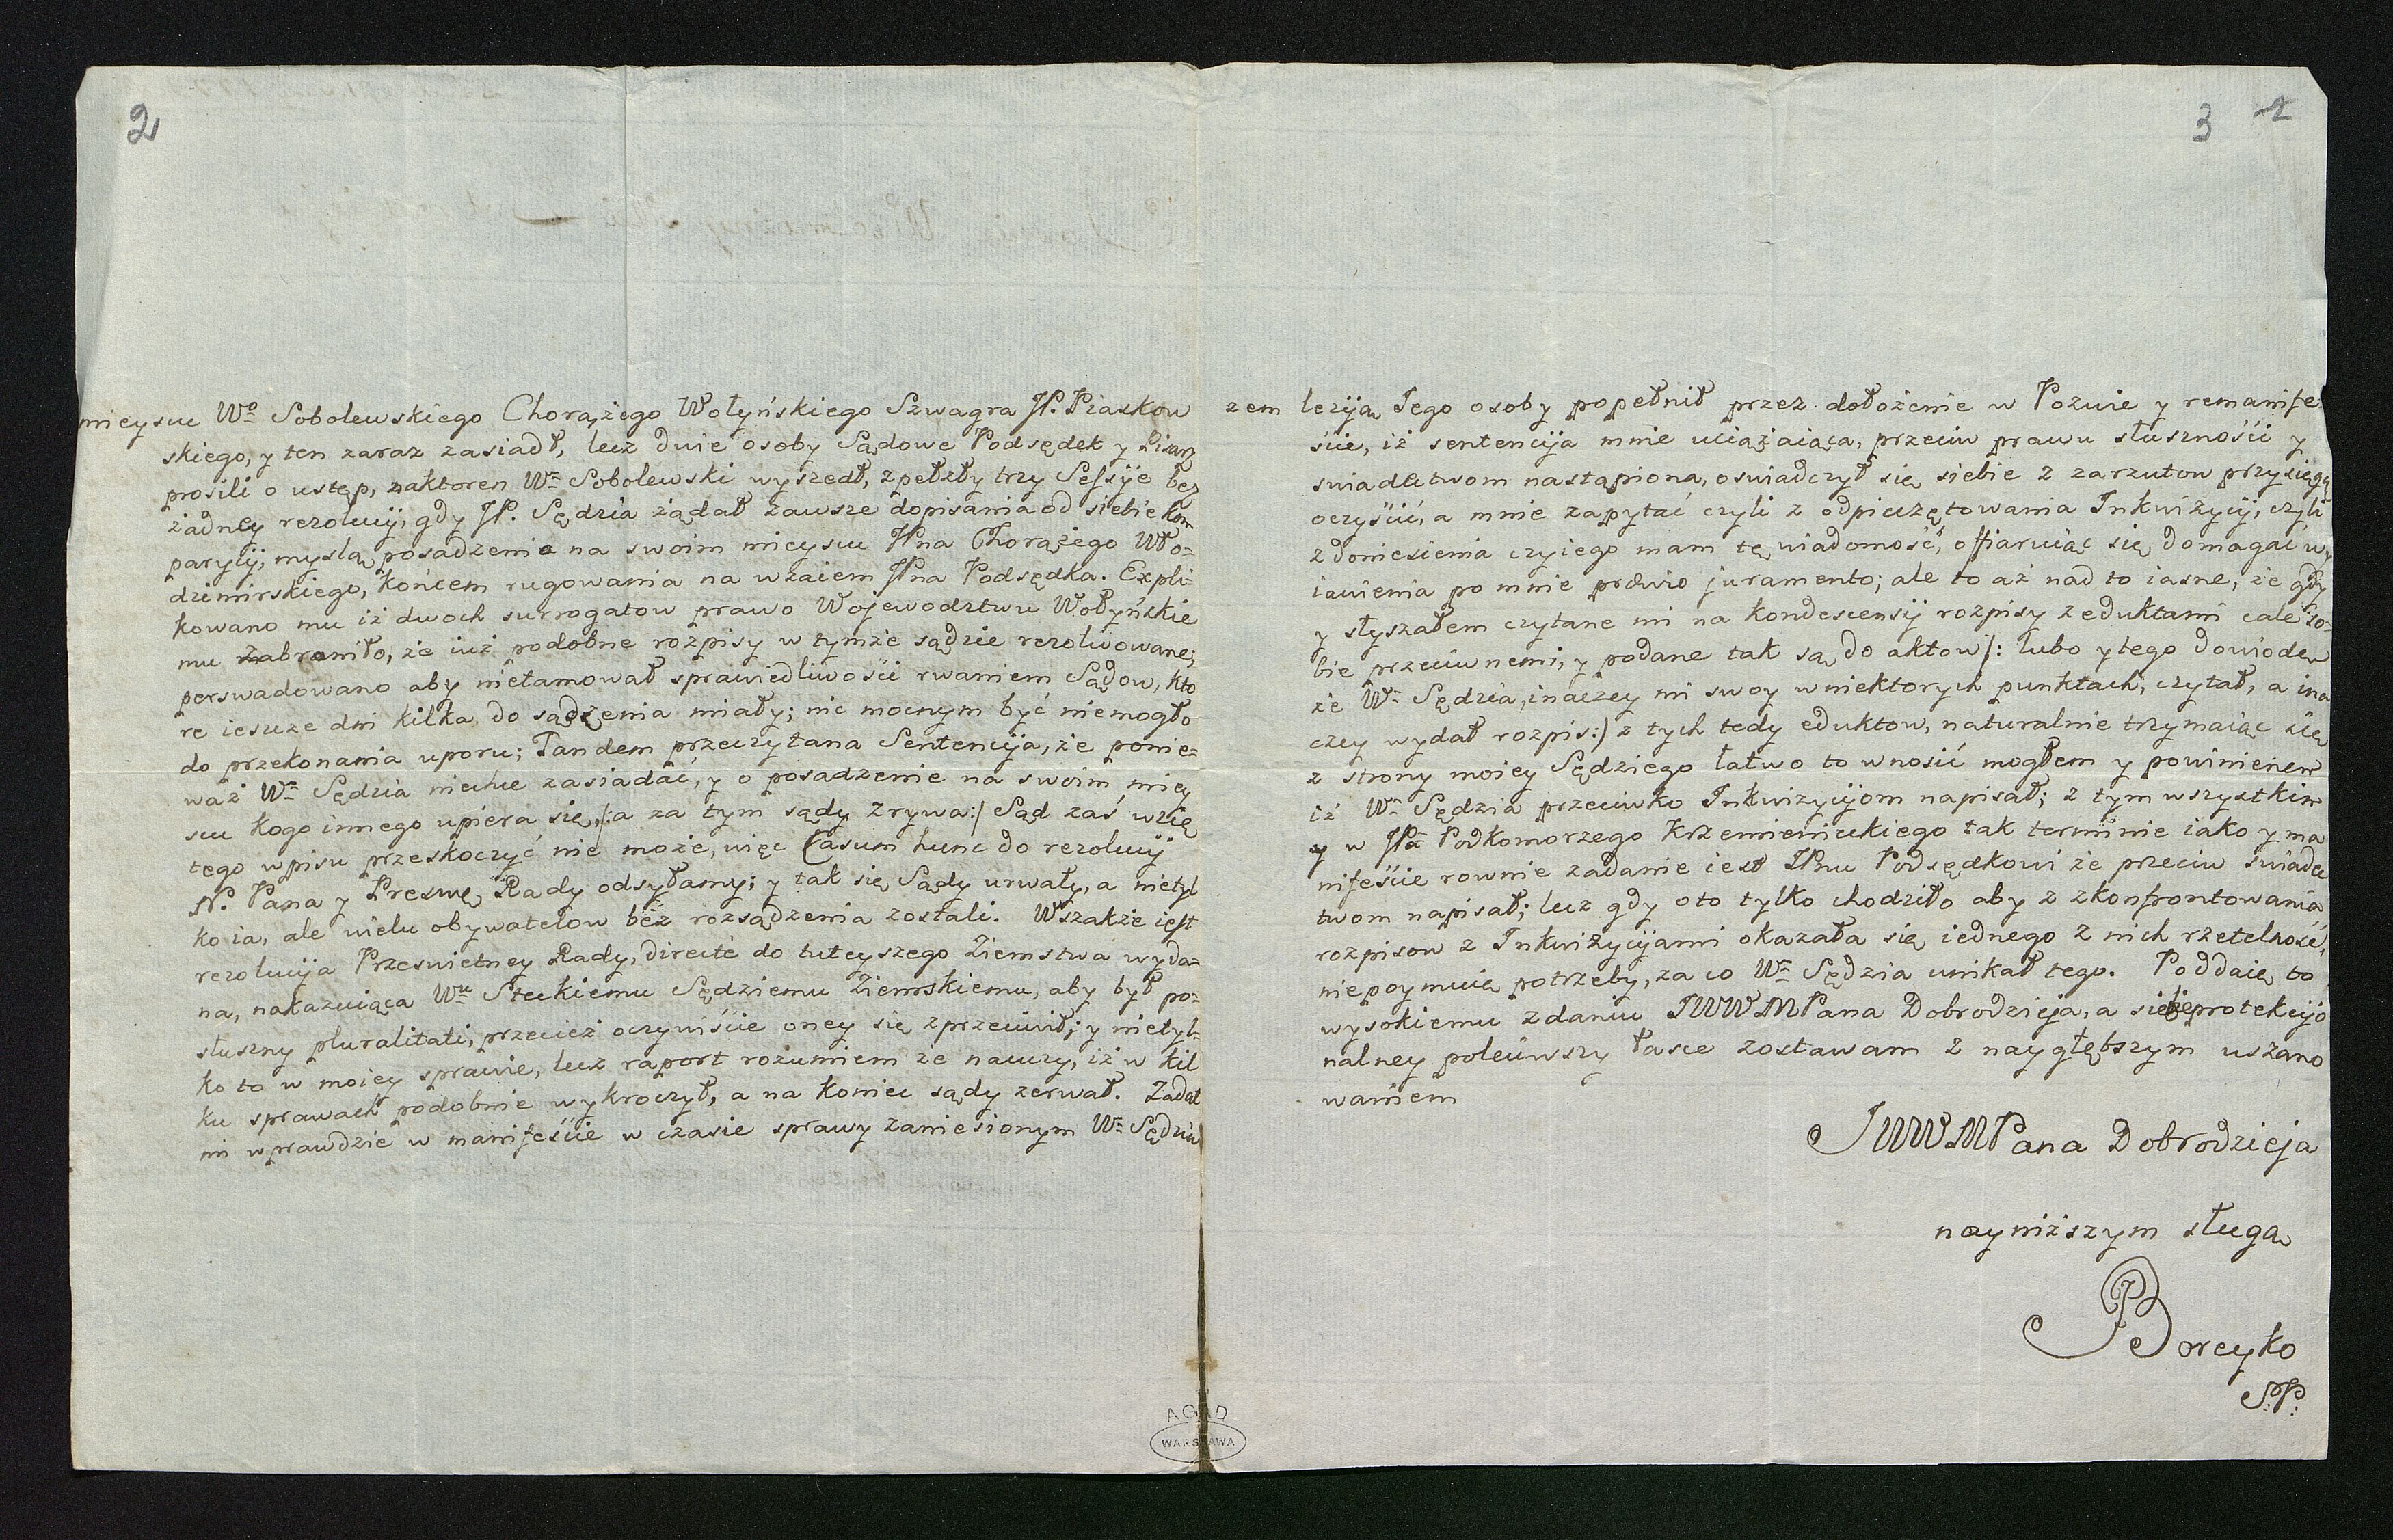 2
mieyscu Wo Sobolewskiego Chorążego Wołyńskiego Szwagra JP. Piaskow
skiego, y ten zaraz zasiadł, lecz dwie osoby Sądowe Podsędek y Pisarz
prosili o ustęp, na ktoren Wn Sobolewski wyszedł, zpełzły trzy Sessyje bez
żadney rezolucij, gdy JP. Sędzia żądał zawsze dopisania od siebie kom
parycij, myslą posadzenia na swoim mieyscu JPna Chorążego Wło=
dzimirskiego, końcem rugowania na wzaiem JPna Podsędka. Expli=
kowano mu iż dwoch surrogatow prawo Wojewodztwu Wołyńskie
mu zabroniło, że iuż podobne rozpisy w tymże sądzie rezolwowane;
perswadowano aby nietamował sprawiedliwości rwaniem Sądow, kto
re ieszcze dni kilka do sądzenia miały; nic mocnym być niemogło
do przekonania uporu; Tandem przeczytana Sentencyja, że ponie=
waż Wn Sędzia niechce zasiadać, y o posadzenie na swoim miey
scu kogo innego upiera się /:a za tym sądy zrywa:/ Sąd zaś wzię
tego wpisu przeskoczyć nie może, więc Casum hunc do rezolucij
N. Pana y Preswę Rady odsyłamy; y tak się Sądy urwały, a nietyl
ko ia, ale wielu obywatelow bez rozsądzenia zostali. Wszakże iest
rezolucyja Przeswietney Rady, directè do tuteyszego Ziemstwa wyda=
na, nakazuiąca Wu Steckiemu Sędziemu Ziemskiemu, aby był po=
słuszny pluralitati, przecież oczywiście oney się zprzeciwił; y nietyl=
ko to w moiey sprawie, lecz raport rozumiem że nauczy, iż w kil
ku sprawach podobnie wykroczył, a na koniec sądy zerwał. Zadał
mi wprawdzie w manifeście w czasie sprawy zaniesionym Wn Sędzia
3 2
zem lezyją Jego osoby popełnił przez dołożenie w Pozwie y remanife=
ście, iż sentencyja mnie uciążaiąca, przeciw prawu słuszności y
swiadectwom nastąpiona, oswiadczył się siebie z zarzutow przysięgą
oczyścić, a mnie zapytać czyli z odpieczętowania Inkwizycij, czyli
z doniesienia czyiego mam tę wiadomość, offiaruiąc się domagać wy
iawienia po mnie prævio juramento; ale to aż nad to iasne, że gdy
y słyszałem czytane mi na kondescensij rozpisy z eduktami cale so=
bie przeciwnemi, y podane tak są do aktow /: lubo y tego dowiodę
że Wn Sędzia, inaczey mi swoy w niektorych punktach, czytał, a ina
czey wydał rozpis:/ z tych tedy eduktow, naturalnie trzymaiąc się
z strony moiey Sędziego łatwo to wnosić mogłem y powinienem
iż Wn Sędzia przeciwko Inkwizycyjom napisał; z tym wszystkim
y w JPa Podkomorzego Krzemienieckiego tak terminie iako y ma
nifeście rownie zadanie iest JPnu Podsędkowi że przeciw swiadec
twom napisał; lecz gdy oto tylko chodziło aby z zkonfrontowania
rozpisow z Inkwizycyjami okazała się iednego z nich rzetelność,
niepoymuię potrzeby, za co Wn Sędzia unikał tego. Poddaię to
wysokiemu zdaniu JWWMPana Dobrodzieja, a siebie protekcyjo
nalney poleciwszy łasce zostawam z naygłębszym uszano
waniem
JWWMPana Dobrodzieja
nayniższym sługą
PBoreyko
S:P:
AGAD
WARSZAWA